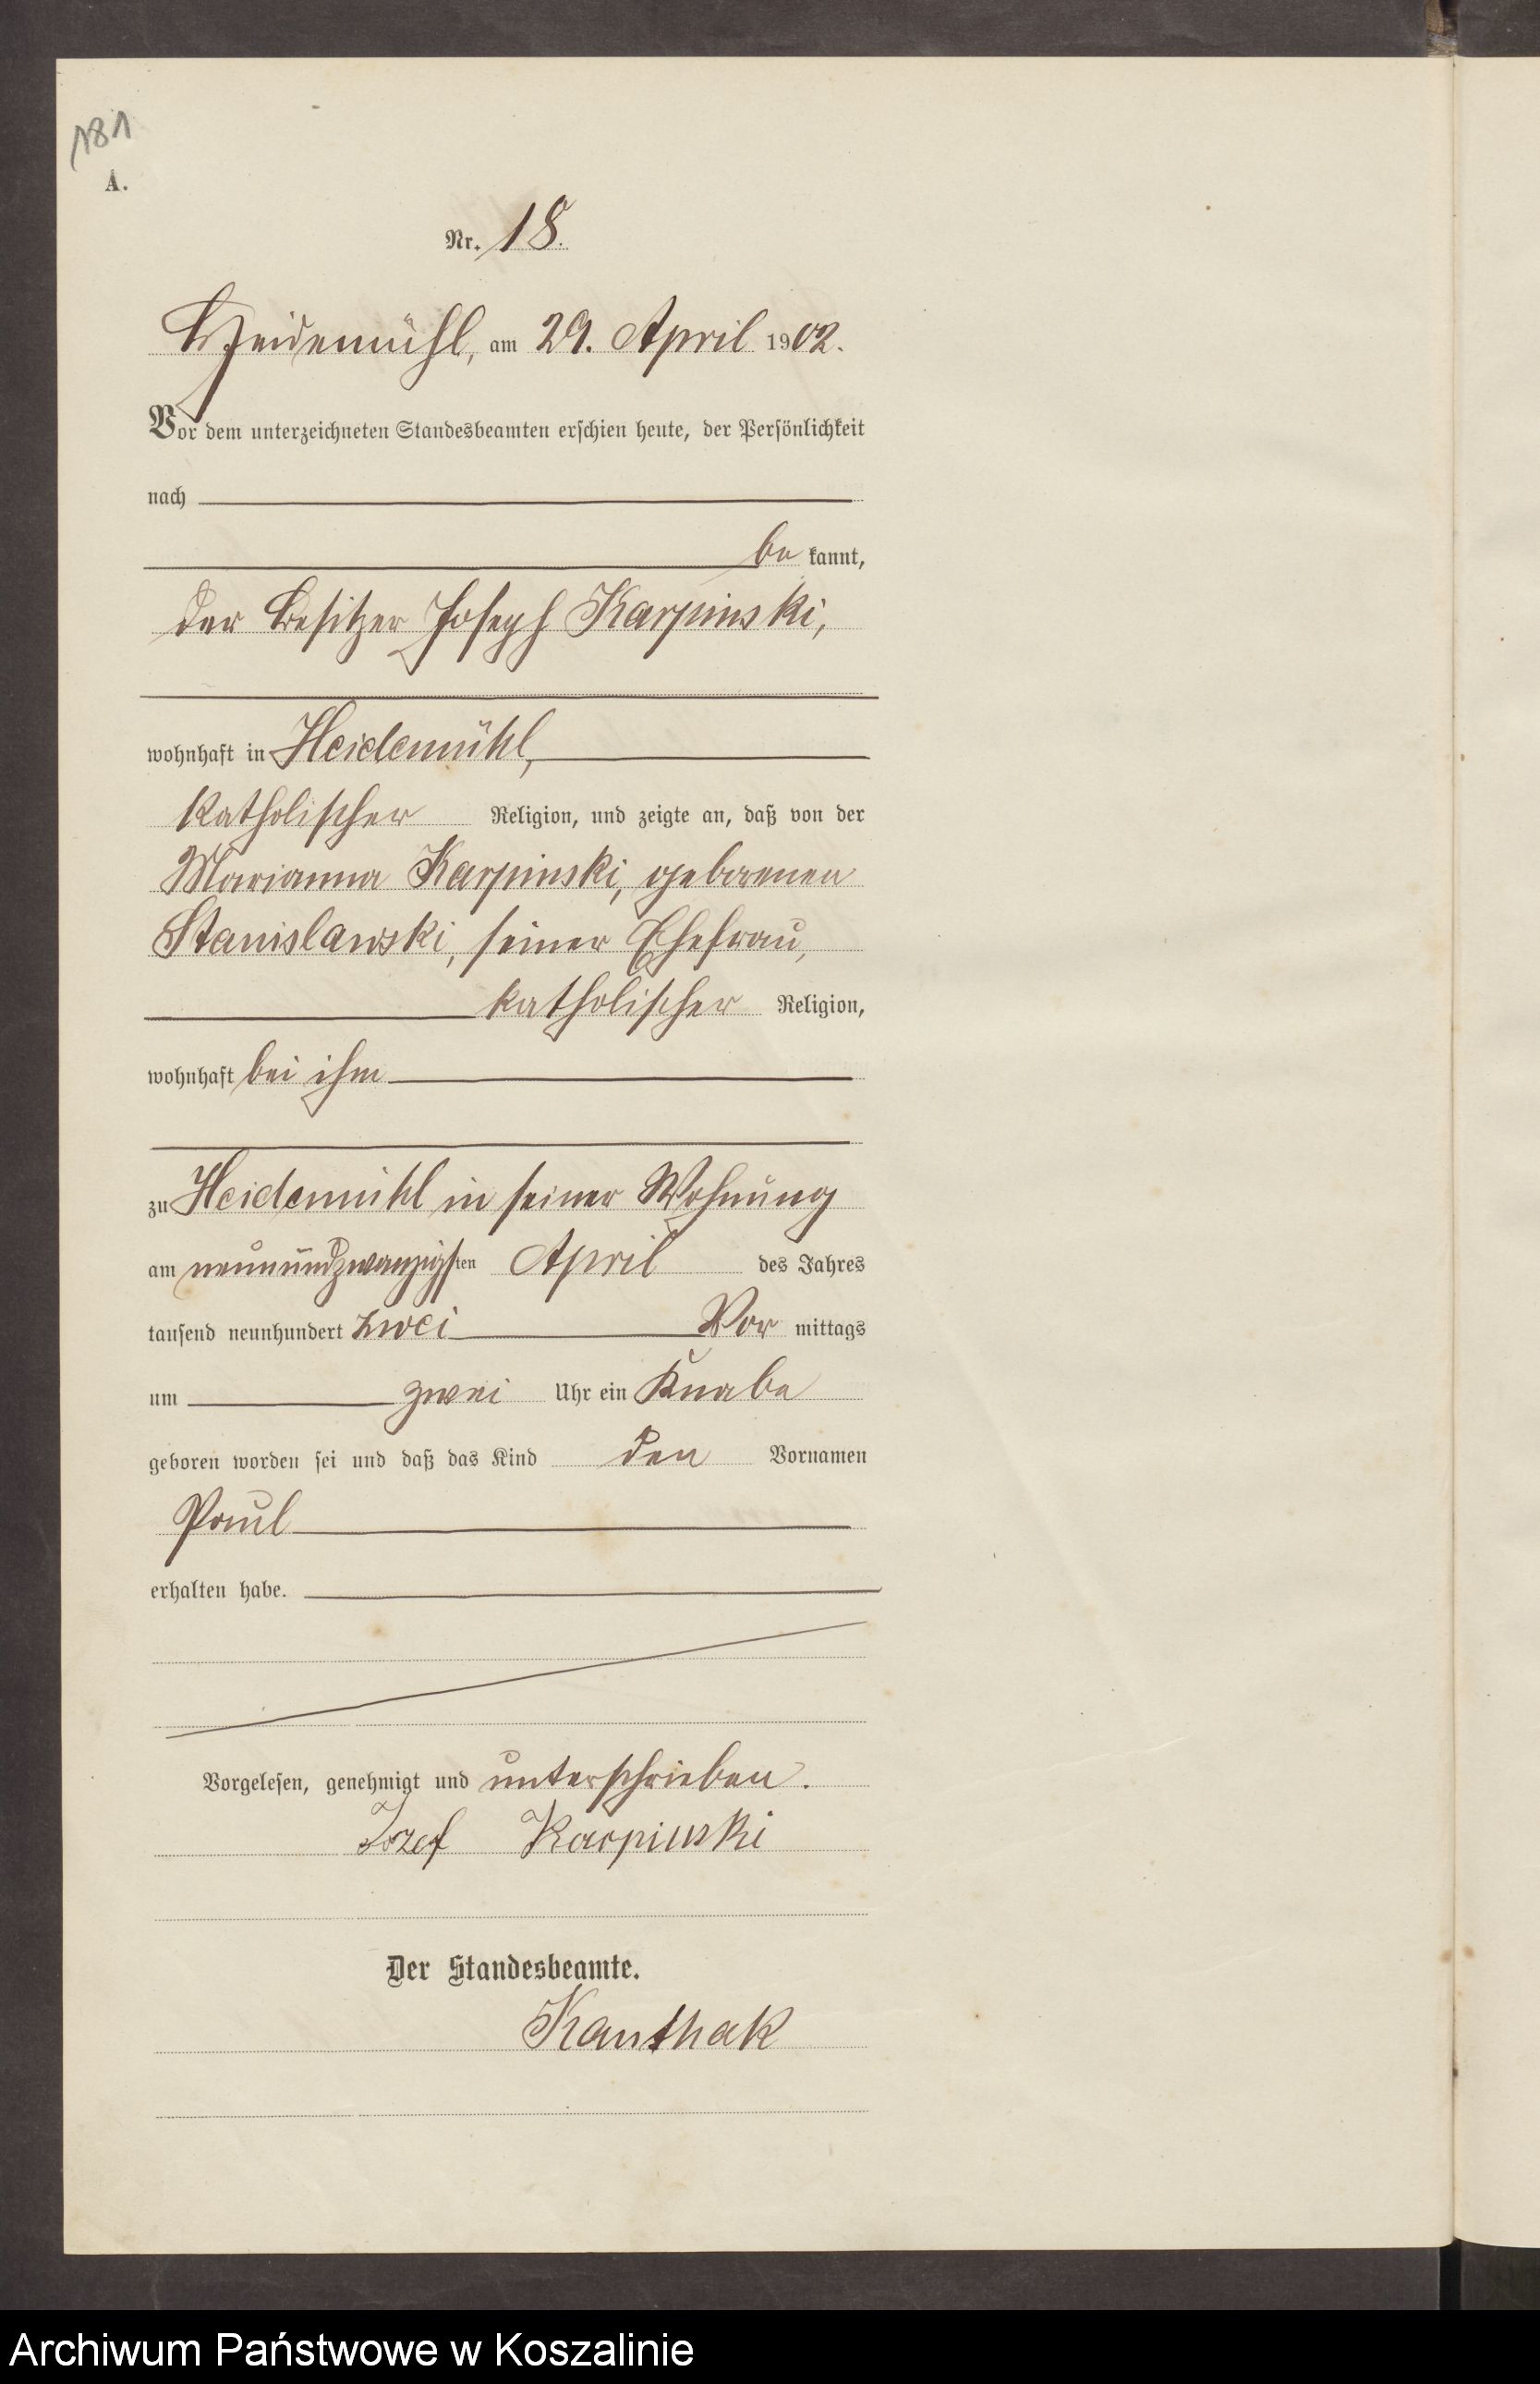 181
A.
Nr. 18.
Heidemühl, am 29. April 1902.
Vor dem unterzeichneten Standesbeamten erschien heute, der Persönlichkeit
nach
be kannt,
der Besitzer Joseph Karpinski,
wohnhaft in Heidemühl,
katholischer Religion, und zeigte an, daß von der
Marianna Karpinski, geborenen
Stanislawski, seiner Ehefrau,
katholischer Religion,
wohnhaft bei ihm
zu Heidemühl in seiner Wohnung
am neunundzwanzigsten April des Jahres
tausend neunhundert zwei Vor mittags
um zwei Uhr ein Knabe
geboren worden sei und daß das Kind den Vornamen
Paul
erhalten habe.
Vorgelesen, genehmigt und unterschrieben.
Jozef Karpinski
Der Standesbeamte.
Kanthak
Archiwum Państwowe w Koszalinie